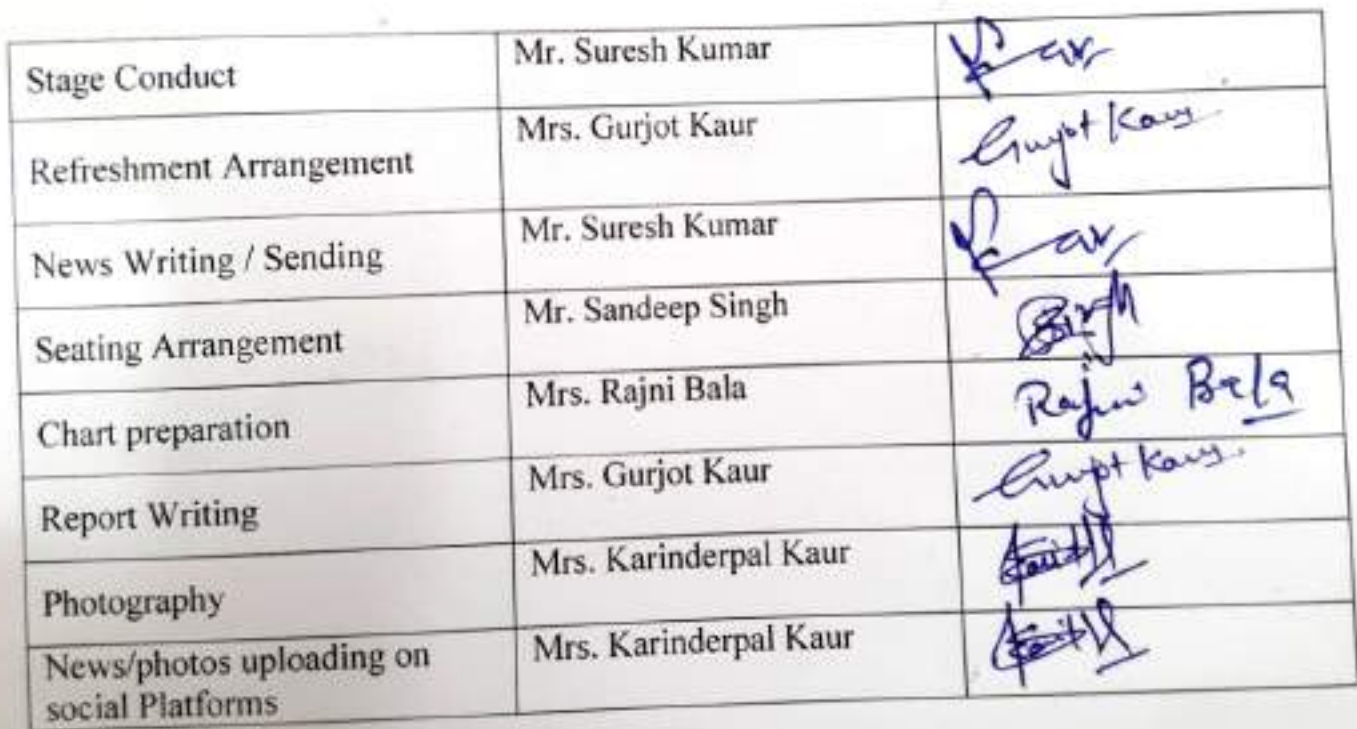 Stage Conduct
Mr. Suresh Kumar
Refreshment Arrangement
Mrs. Gurjot Kaur
Gurjot Kaur
News Writing / Sending
Mr. Suresh Kumar
Seating Arrangement
Mr. Sandeep Singh
Chart preparation
Mrs. Rajni Bala
Rajni Bala
Report Writing
Mrs. Gurjot Kaur
Gurjot Kaur
Photography
Mrs. Karinderpal Kaur
News/photos uploading on
social Platforms
Mrs. Karinderpal Kaur